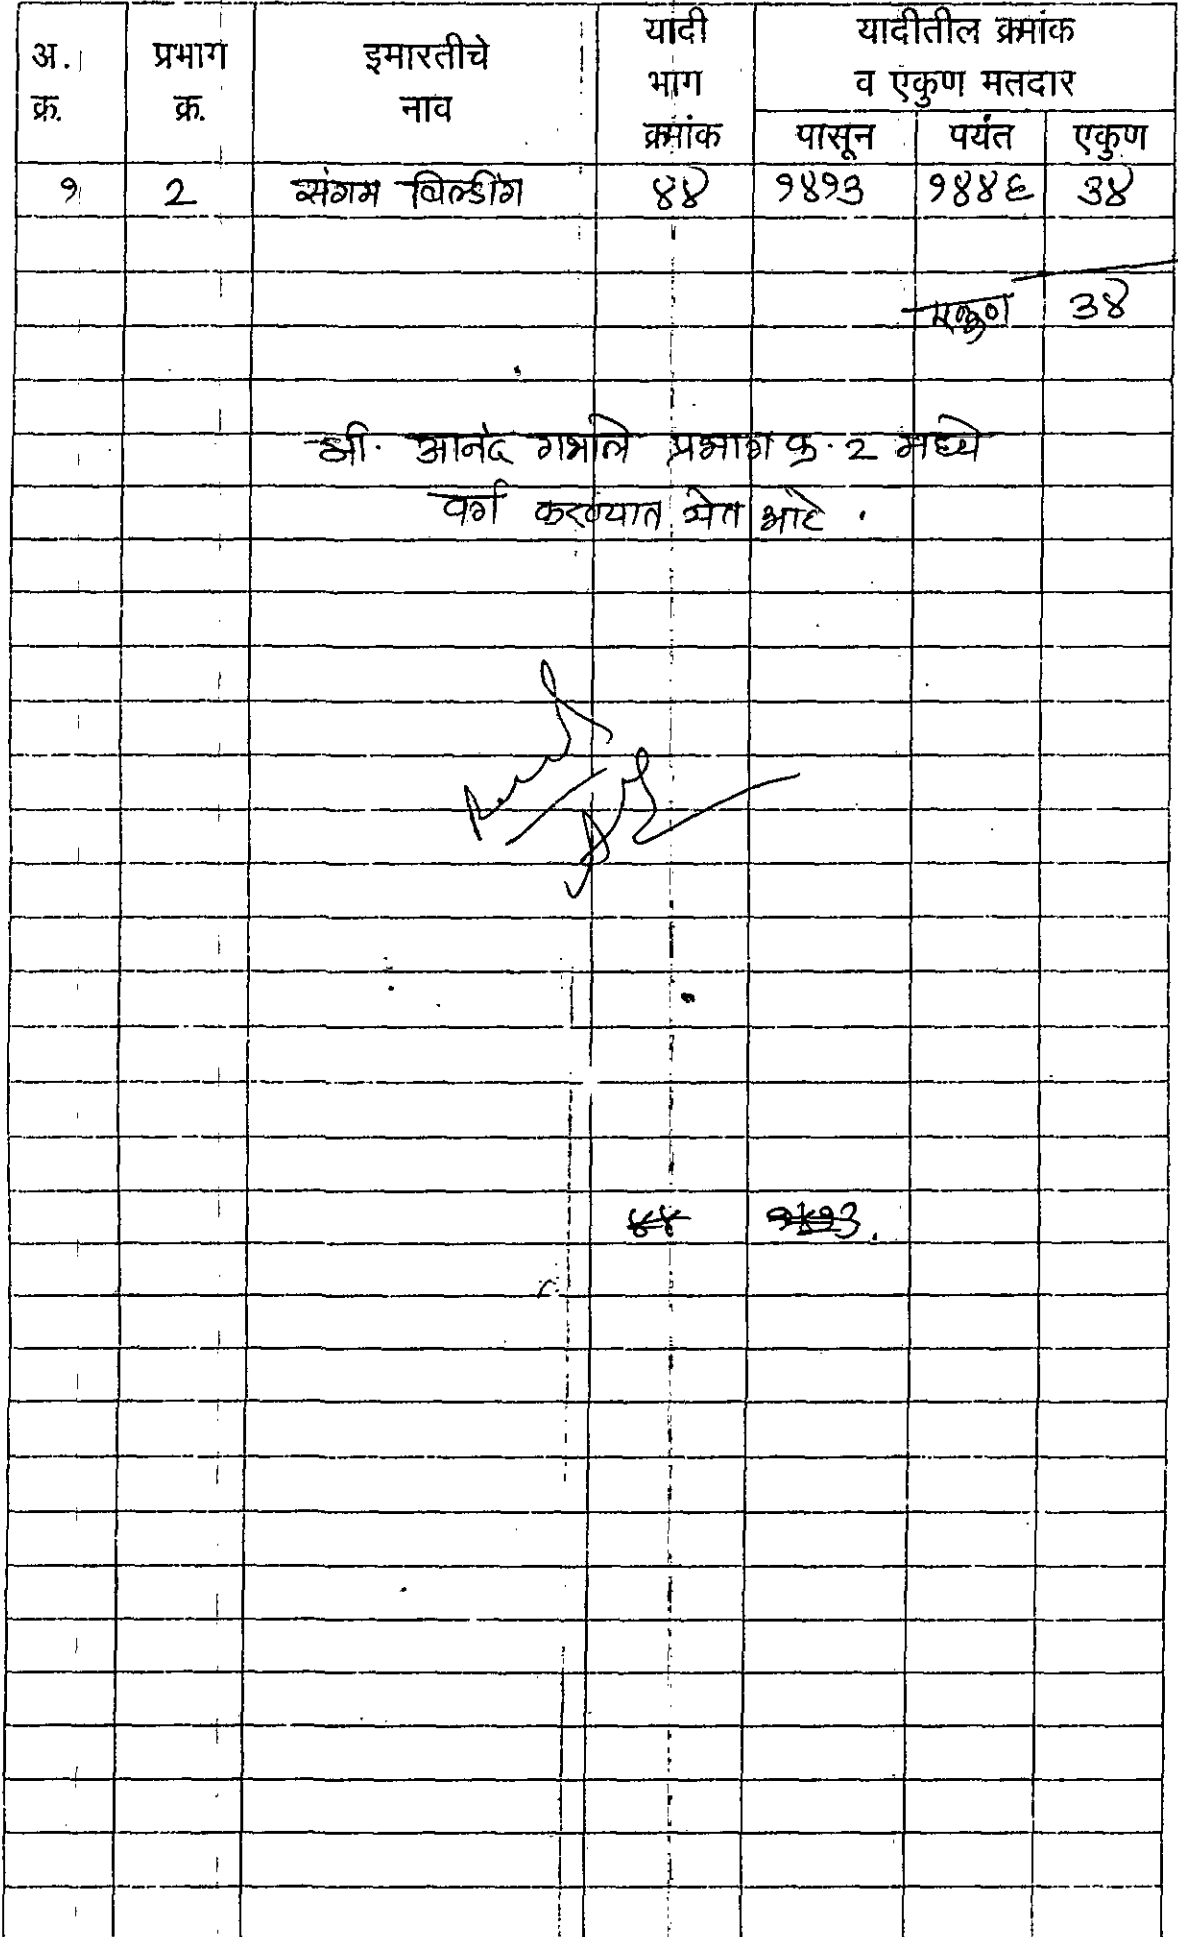 अ. क्र. | प्रभाग क्र. | इमारतीचे नाव | यादी भाग क्रमांक | यादीतील क्रमांक व एकुण मतदार
पासून | पर्यंत | एकुण
१ | 2 | संगम बिल्डींग | ४४ | १४१३ | १४४६ | ३४
एकुण ३४
श्री. आनंद गभाले प्रभाग क्र. 2 मध्ये
वर्ग करण्यात येत आहे.
४४ १४१३.